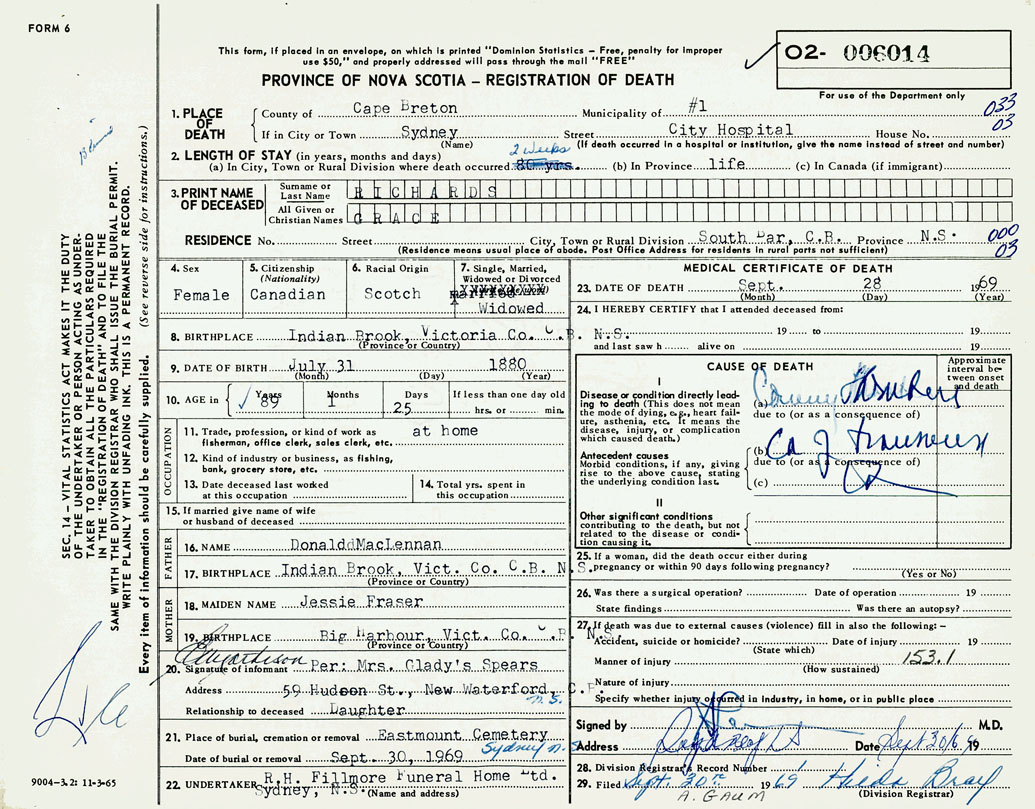 FORM 6
This form, if placed in an envelope, on which is printed "Dominion Statistics – Free, penalty for improper
use $50," and properly addressed will pass through the mail "FREE"
PROVINCE OF NOVA SCOTIA – REGISTRATION OF DEATH
O2- 006014
For use of the Department only
033
03
1. PLACE OF DEATH
County of Cape Breton Municipality of #1
If in City or Town Sydney Street City Hospital House No.
(Name) (If death occurred in a hospital or institution, give the name instead of street and number)
2. LENGTH OF STAY (in years, months and days)
2 weeks
(a) In City, Town or Rural Division where death occurred 80 yrs. (b) In Province life (c) In Canada (if immigrant)
3. PRINT NAME OF DECEASED
Surname or Last Name RICHARDS
All Given or Christian Names GRACE
RESIDENCE No. Street City, Town or Rural Division South Bar, C.B. Province N.S.
(Residence means usual place of abode. Post Office Address for residents in rural parts not sufficient)
000
03
4. Sex
Female
5. Citizenship
(Nationality)
Canadian
6. Racial Origin
Scotch
7. Single, Married,
Widowed or Divorced
Widowed
8. BIRTHPLACE Indian Brook, Victoria Co. C.B. N.S.
(Province or Country)
9. DATE OF BIRTH July 31 1880
(Month) (Day) (Year)
10. AGE in
Years 89
Months 1
Days 25
If less than one day old
hrs. or min.
OCCUPATION
11. Trade, profession, or kind of work as at home
fisherman, office clerk, sales clerk, etc.
12. Kind of industry or business, as fishing,
bank, grocery store, etc.
13. Date deceased last worked
at this occupation
14. Total yrs. spent in
this occupation
15. If married give name of wife
or husband of deceased
FATHER
16. NAME DonalddMacLennan
17. BIRTHPLACE Indian Brook, Vict. Co. C.B. N.S.
(Province or Country)
MOTHER
18. MAIDEN NAME Jessie Fraser
19. BIRTHPLACE Big Harbour, Vict. Co. C.B. N.S.
(Province or Country)
20. Signature of informant Per: Mrs. Glady's Spears
Address 59 Hudson St., New Waterford, C.B.
N.S.
Relationship to deceased Daughter
21. Place of burial, cremation or removal Eastmount Cemetery
Sydney N.S.
Date of burial or removal Sept. 30, 1969
22. UNDERTAKER R.H. Fillmore Funeral Home Ltd.
Sydney, N.S. (Name and address)
MEDICAL CERTIFICATE OF DEATH
23. DATE OF DEATH Sept. 28 1969
(Month) (Day) (Year)
24. I HEREBY CERTIFY that I attended deceased from:
19 to 19
and last saw h alive on 19
CAUSE OF DEATH
Approximate
interval be-
tween onset
and death
I
Disease or condition directly lead-
ing to death (This does not mean
the mode of dying, e.g., heart fail-
ure, asthenia, etc. It means the
disease, injury, or complication
which caused death.)
(a)
due to (or as a consequence of)
Antecedent causes
Morbid conditions, if any, giving
rise to the above cause, stating
the underlying condition last.
(b) Ca
due to (or as a consequence of)
(c)
II
Other significant conditions
contributing to the death, but not
related to the disease or condi-
tion causing it.
25. If a woman, did the death occur either during
pregnancy or within 90 days following pregnancy?
(Yes or No)
26. Was there a surgical operation? Date of operation 19
State findings Was there an autopsy?
27. If death was due to external causes (violence) fill in also the following: –
Accident, suicide or homicide? Date of injury 19
(State which)
Manner of injury 153.1
(How sustained)
Nature of injury
Specify whether injury occurred in Industry, in home, or in public place
Signed by M.D.
Address Date Sept 30/69 19
28. Division Registrar's Record Number
29. Filed Sept. 30th 1969 Hilda Bray
(Division Registrar)
A. GAUM
SEC. 14 – VITAL STATISTICS ACT MAKES IT THE DUTY
OF THE UNDERTAKER OR PERSON ACTING AS UNDER-
TAKER TO OBTAIN ALL THE PARTICULARS REQUIRED
IN THE "REGISTRATION OF DEATH" AND TO FILE THE
SAME WITH THE DIVISION REGISTRAR WHO SHALL ISSUE THE BURIAL PERMIT.
WRITE PLAINLY WITH UNFADING INK. THIS IS A PERMANENT RECORD.
Every item of information should be carefully supplied. (See reverse side for instructions.)
9004-3.2: 11-3-65